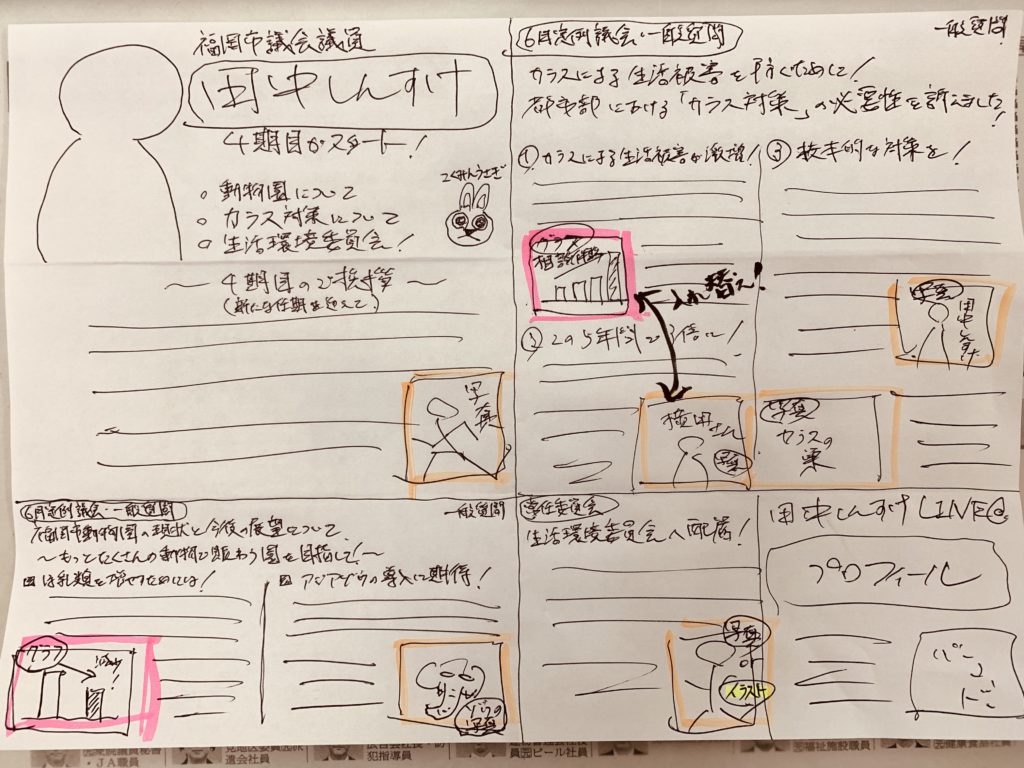 福岡市議会議員
田中しんすけ
4期目がスタート!
○ 動物園について
○ カラス対策について
○ 生活環境委員会!
こくみんうさぎ
〜 4期目のご挨拶 〜
(新たな任期を迎えて)
写真
6月定例議会・一般質問
一般質問
カラスによる生活被害を防ぐために!
都市部における「カラス対策」の必要性を訴えました!
① カラスによる生活被害が激増!
グラフ
相談件数
入れ替え!
② この5年間で3倍に!
植田さん
写真
③ 抜本的な対策を!
写真
田中しんすけ
写真
カラスの巣
6月定例議会・一般質問
一般質問
福岡市動物園の現状と今後の展望について
〜もっとたくさんの動物で賑わう園を目指して!〜
ほ乳類を増やすためには!
グラフ
アジアゾウの導入に期待!
ゾウの写真
常任委員会
生活環境委員会へ配属!
写真
or
イラスト
田中しんすけLINE@
プロフィール
バーコード